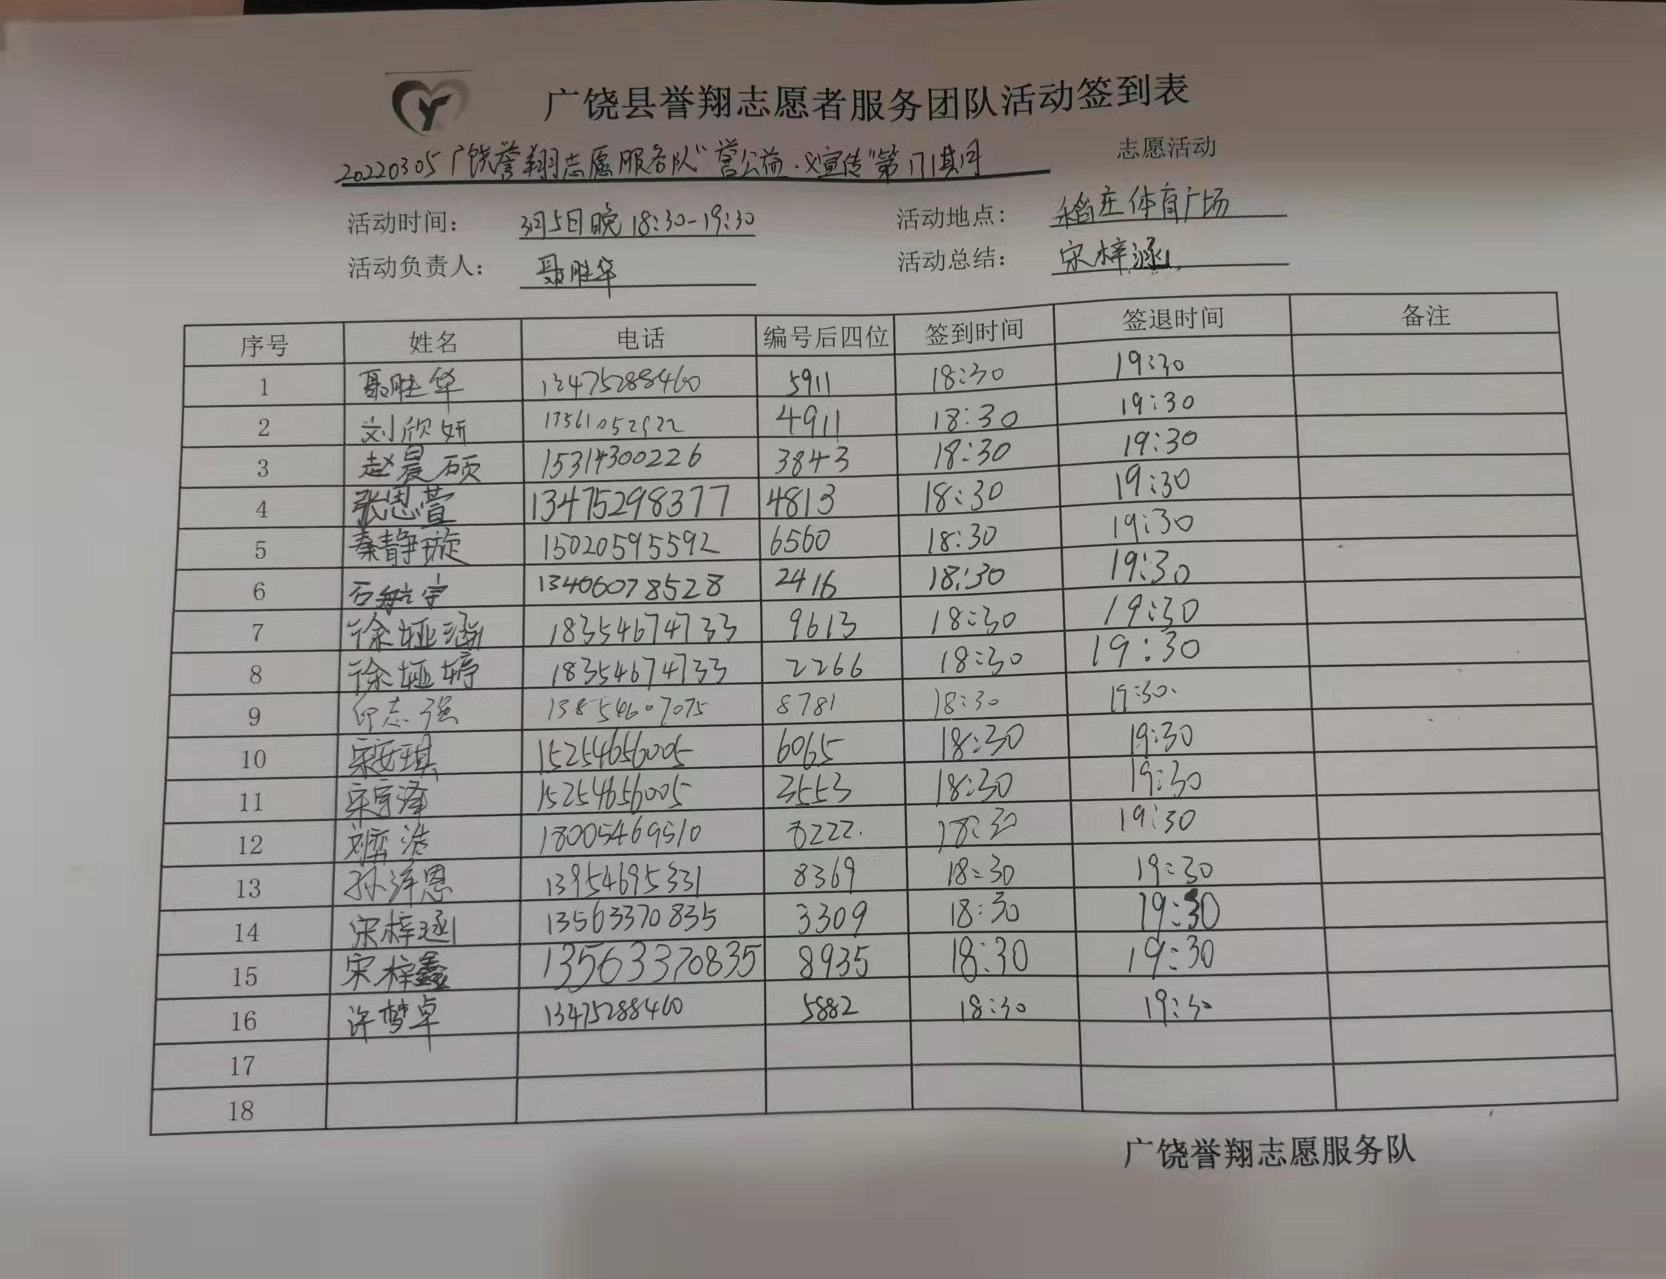 广饶县誉翔志愿者服务团队活动签到表
20220305广饶誉翔志愿服务队"誉公益·义宣传"第171期 志愿活动
活动时间: 3月5日晚18:30-19:30 活动地点: 稻庄体育广场
活动负责人: 聂胜华 活动总结: 宋梓涵
序号 姓名 电话 编号后四位 签到时间 签退时间 备注
1 聂胜华 13475288460 5911 18:30 19:30
2 刘欣妍 4911 18:30 19:30
3 赵晨硕 15314300226 3843 18:30 19:30
4 张恩萱 13475298377 4813 18:30 19:30
5 秦静璇 15020595592 6560 18:30 19:30
6 石航宇 13406078528 2416 18:30 19:30
7 徐垭涵 18354674733 9613 18:30 19:30
8 徐垭婷 18354674733 2266 18:30 19:30
9 印志强 13854607075 8781 18:30 19:30
10 宋安琪 15254656005 6065 18:30 19:30
11 宋宜泽 15254656005 3553 18:30 19:30
12 18005469510 8222 18:30 19:30
13 孙泽恩 13954695331 8369 18:30 19:30
14 宋梓涵 13563370835 3309 18:30 19:30
15 宋梓鑫 13563370835 8935 18:30 19:30
16 许梦卓 13475288460 5882 18:30 19:30
17
18
广饶誉翔志愿服务队